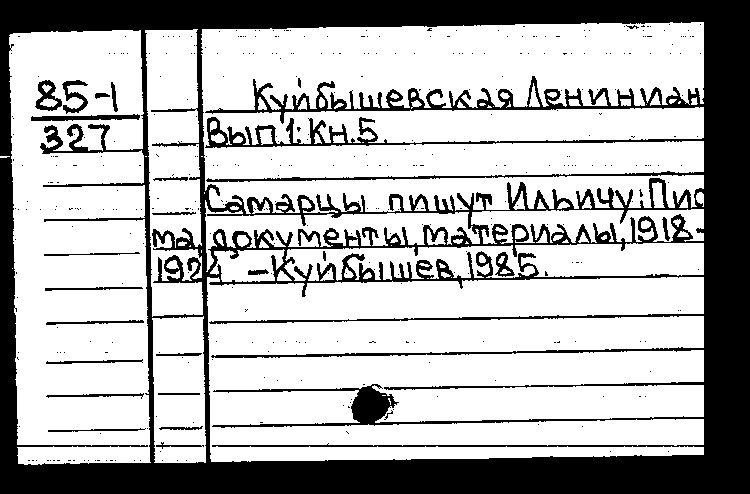 85-1
327
Куйбышевская Лениниан
Вып.1: Кн.5.
Самарцы пишут Ильичу: Пис
ма, документы, материалы, 1918-
1924. - Куйбышев, 1985.